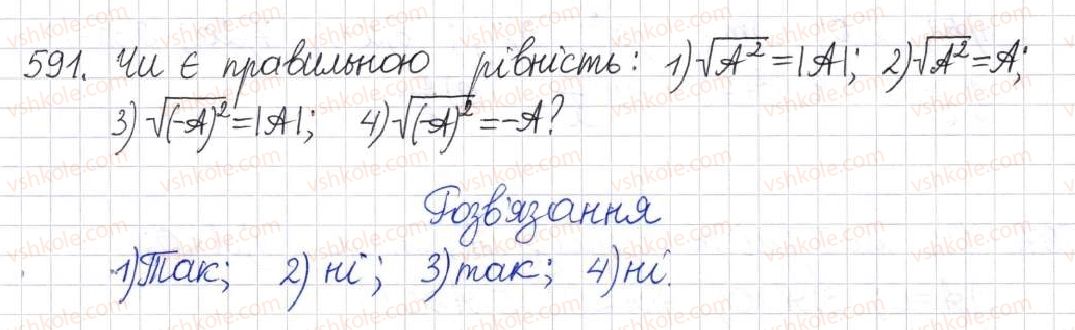 591. Чи є правильною рівність: 1) √A² = |A|; 2) √A² = A;
3) √(-A)² = |A|; 4) √(-A)² = -A?
Розв'язання
1) Так; 2) ні; 3) так; 4) ні.